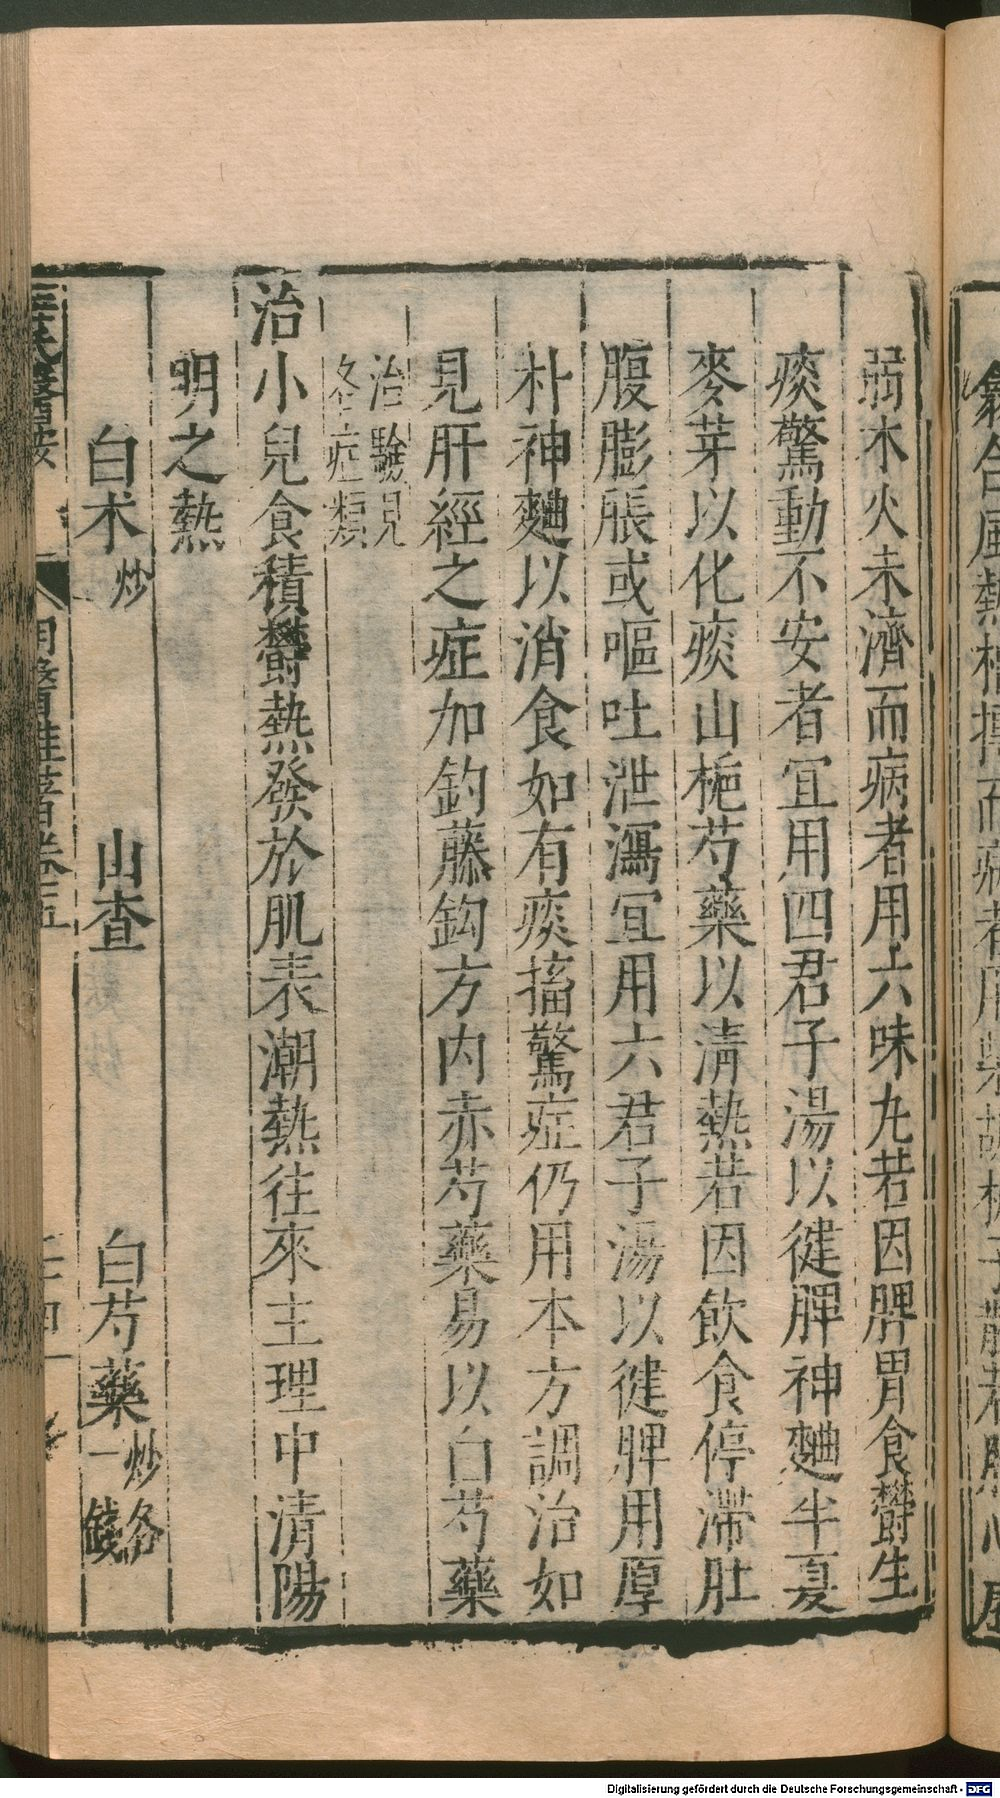 弱木火未濟而病者用六味丸若因脾胃食欝生
痰驚動不安者宜用四君子湯以徤脾神麯半夏
麥芽以化痰山梔芍藥以淸熱若因飲食停滯肚
腹膨脹或嘔吐泄瀉宜用六君子湯以徤脾用厚
朴神麯以消食如有痰搐驚症仍用本方調治如
見肝經之症加釣藤鈎方內赤芍藥易以白芍藥
治驗見
各症類
治小兒食積欝熱發於肌表潮熱往來主理中清陽
明之熱
白朮炒 山查 白芍藥炒各一錢
Digitalisierung gefördert durch die Deutsche Forschungsgemeinschaft - DFG